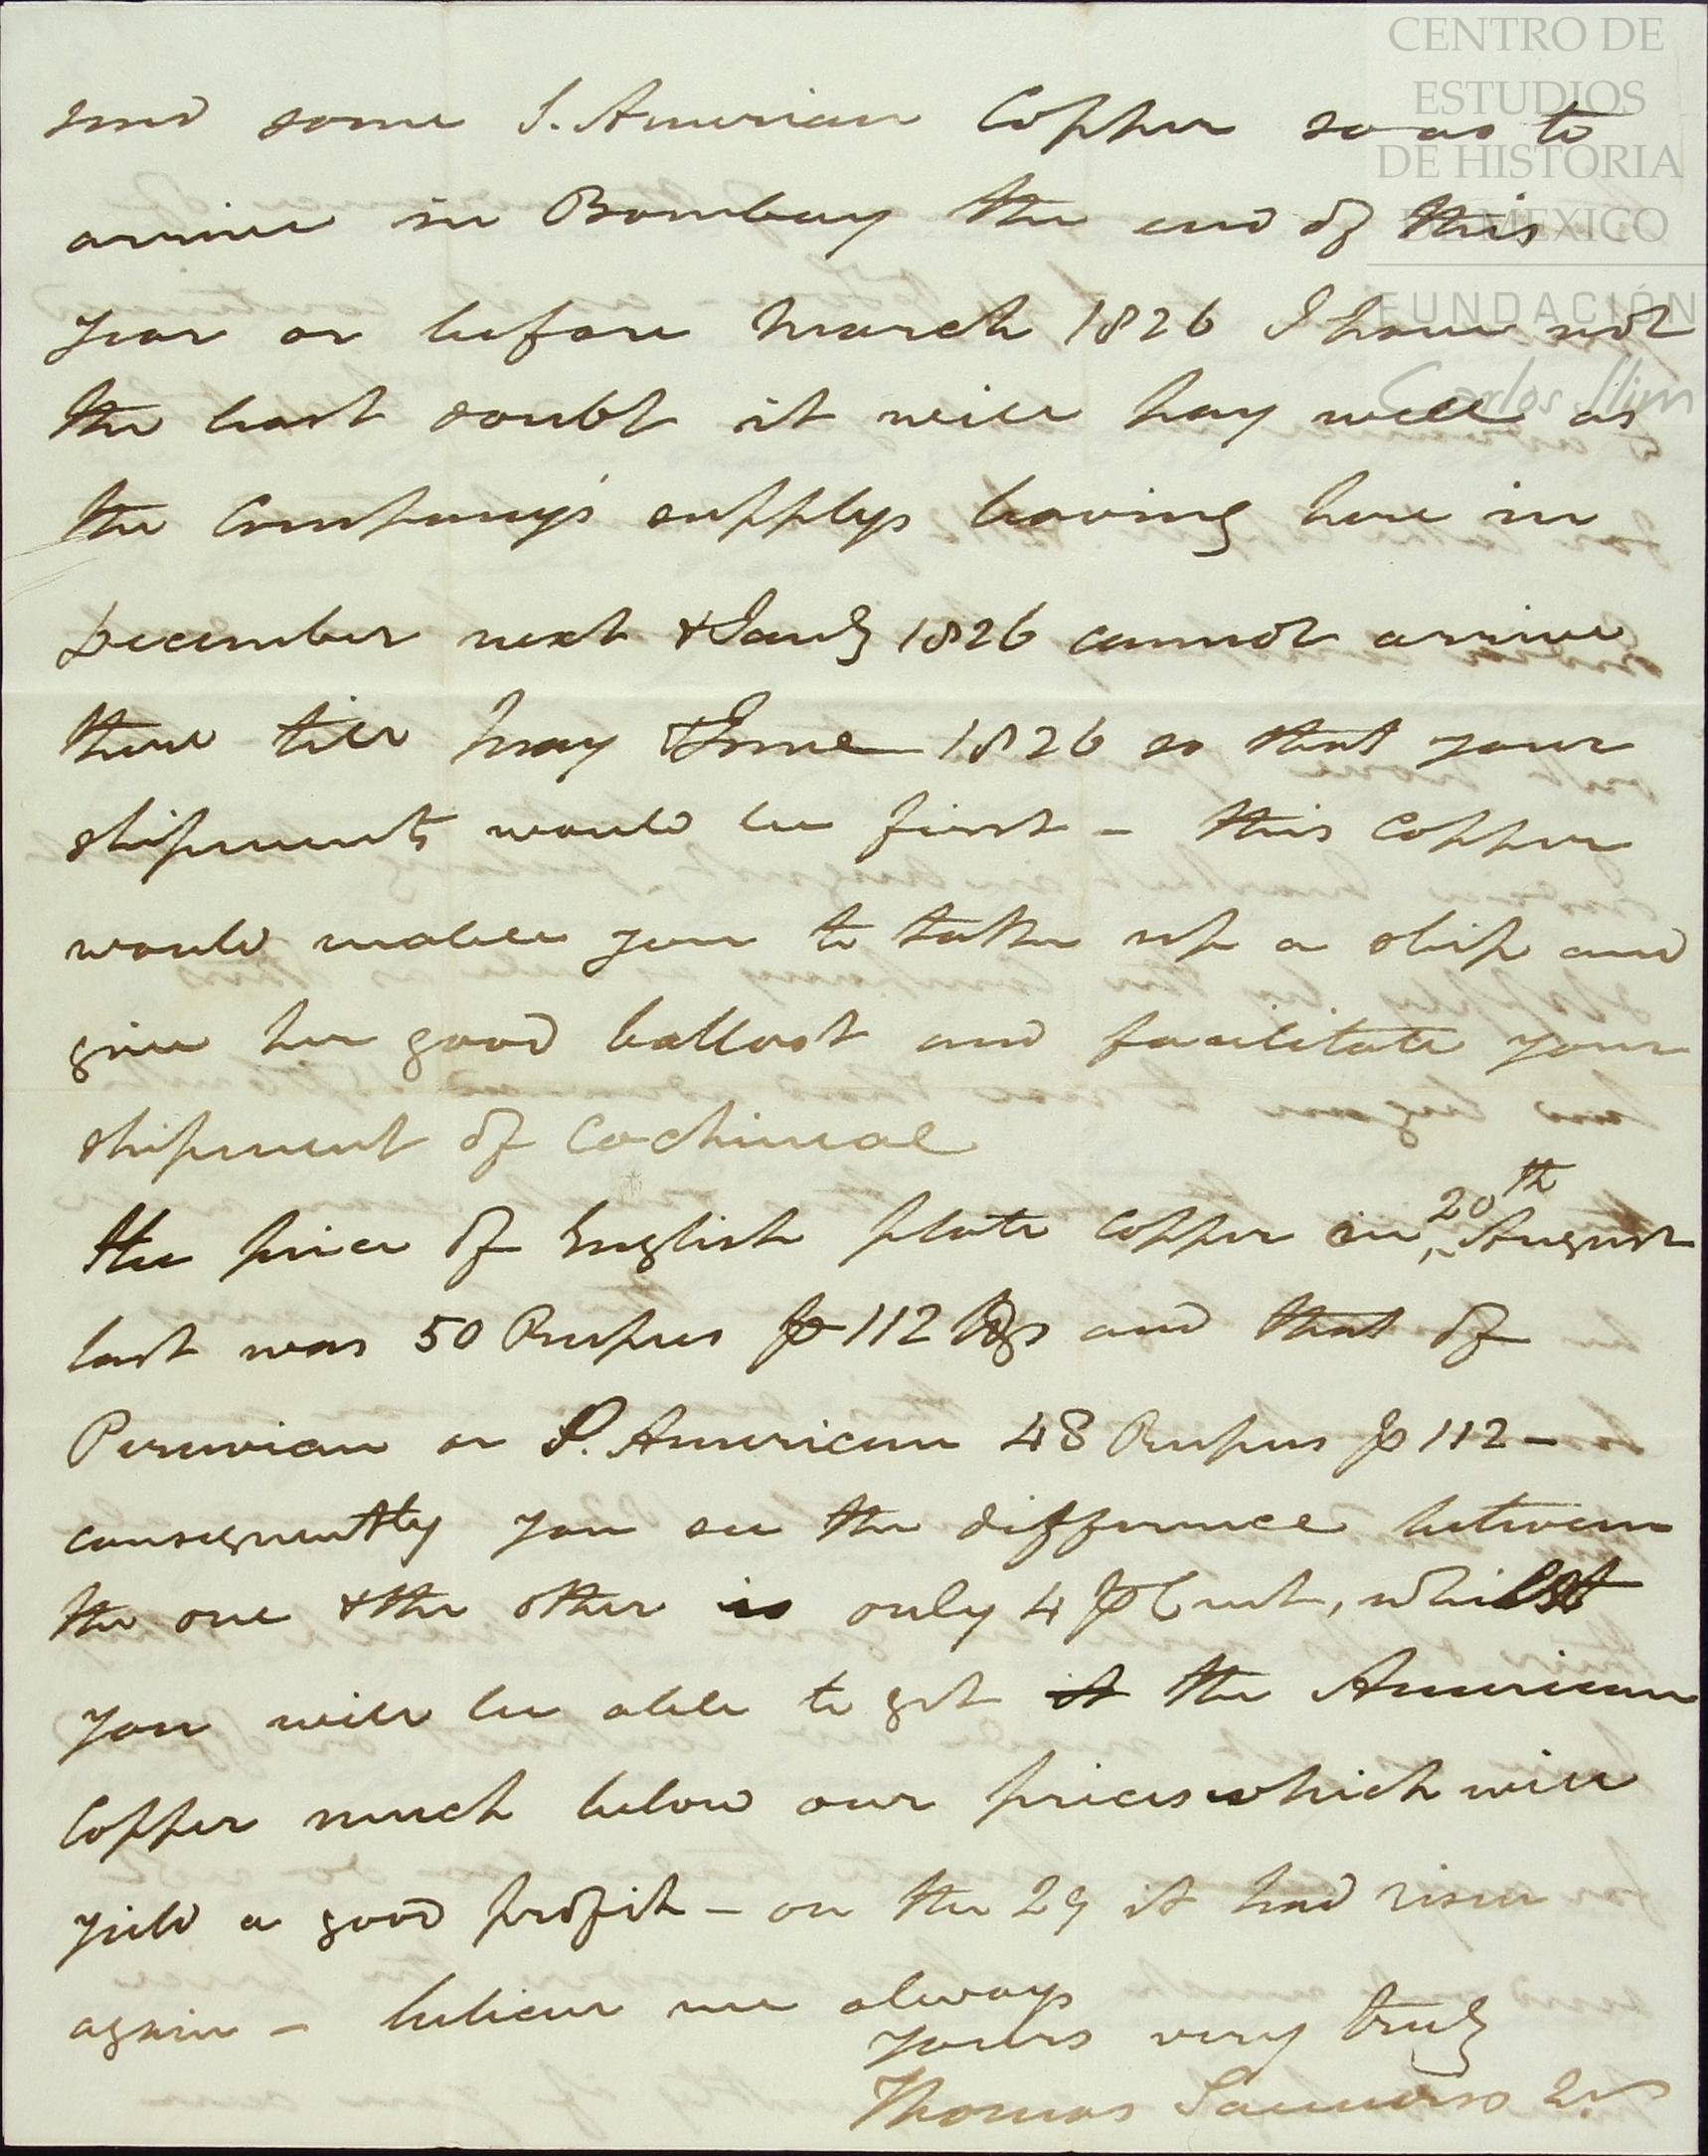 CENTRO DE
ESTUDIOS
DE HISTORIA
DE MEXICO
FUNDACIÓN
Carlos Slim
send some S. American Copper so as to
arrive in Bombay the end of this
year or before March 1826 I have not
the least doubt it will pay well as
the Company's supplys leaving here in
December next & Jany 1826 cannot arrive
there till May & June 1826 so that your
shipments would be first - this Copper
would enable you to take up a ship and
give her good ballast and facilitate your
shipment of Cochineal
the price of English plate Copper in 20th August
last was 50 Rupees p 112 lbs and that of
Peruvian or S. American 48 Rupees p 112 -
consequently you see the difference between
the one & the other is only 4 p Cent, whilst
you will be able to get it the American
Copper much below our prices which will
yield a good profit - on the 29 it had risen
again - believe me always
yours very truly
Thomas